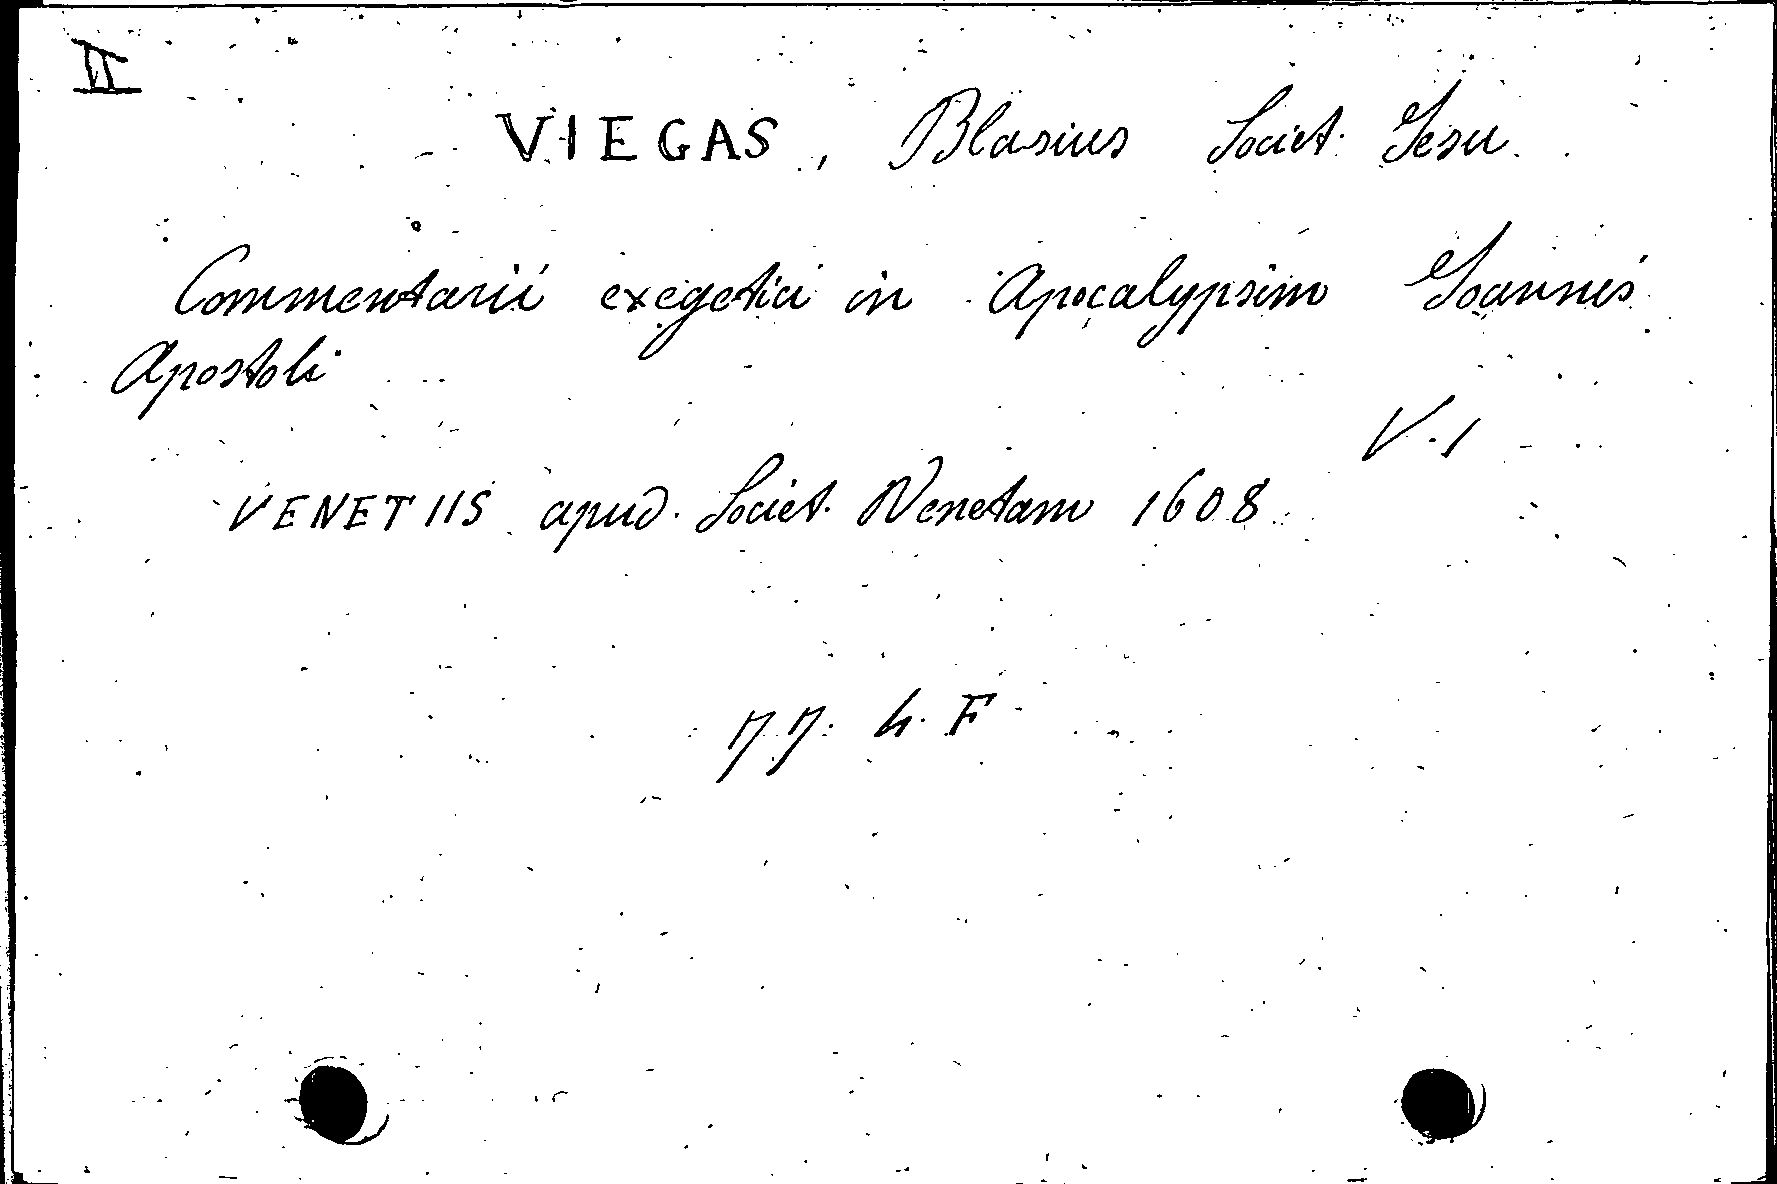 II
VIEGAS, Blasius Societ. Iesu
Commentarii exegetici in Apocalypsim Ioannis
Apostoli
V. 1
VENETIIS apud. Societ. Venetam 1608
4. F